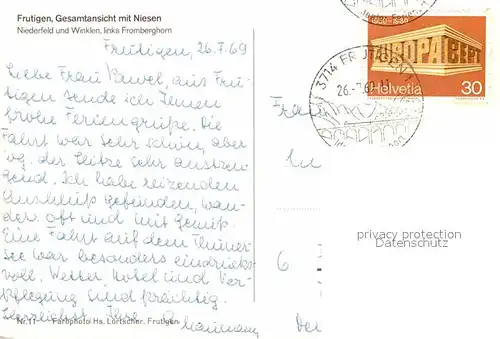 Frutigen, Gesamtansicht mit Niesen
Niederfeld und Winklen, links Fromberghorn
Frutigen, 26.7.69
Liebe Frau Kawel, aus Fru-
tigen sende ich Ihnen
frohe Feriengrüße. Die
Fahrt war sehr schön, aber
wg. der Hitze sehr anstren-
gend. Ich habe reizenden
Anschluß gefunden, wan-
dere oft und mit Genuß.
Eine Fahrt auf dem Thuner-
see war besonders eindrucks-
voll. Wetter Hotel und Ver-
pflegung sind prächtig.
Herzlichst Ihre
Nr. 11 - Farbphoto Hs. Lörtscher, Frutigen
1960-1980
EUROPA CEPT
Helvetia 30
3714 FRUTIGEN 1
26.-7.69.-11
Frau
In
6
privacy protection
Datenschutz